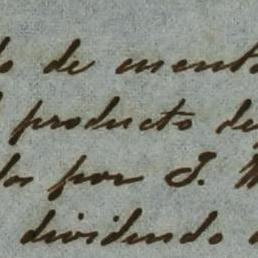 de cuent
producto de
por J.
dividendo